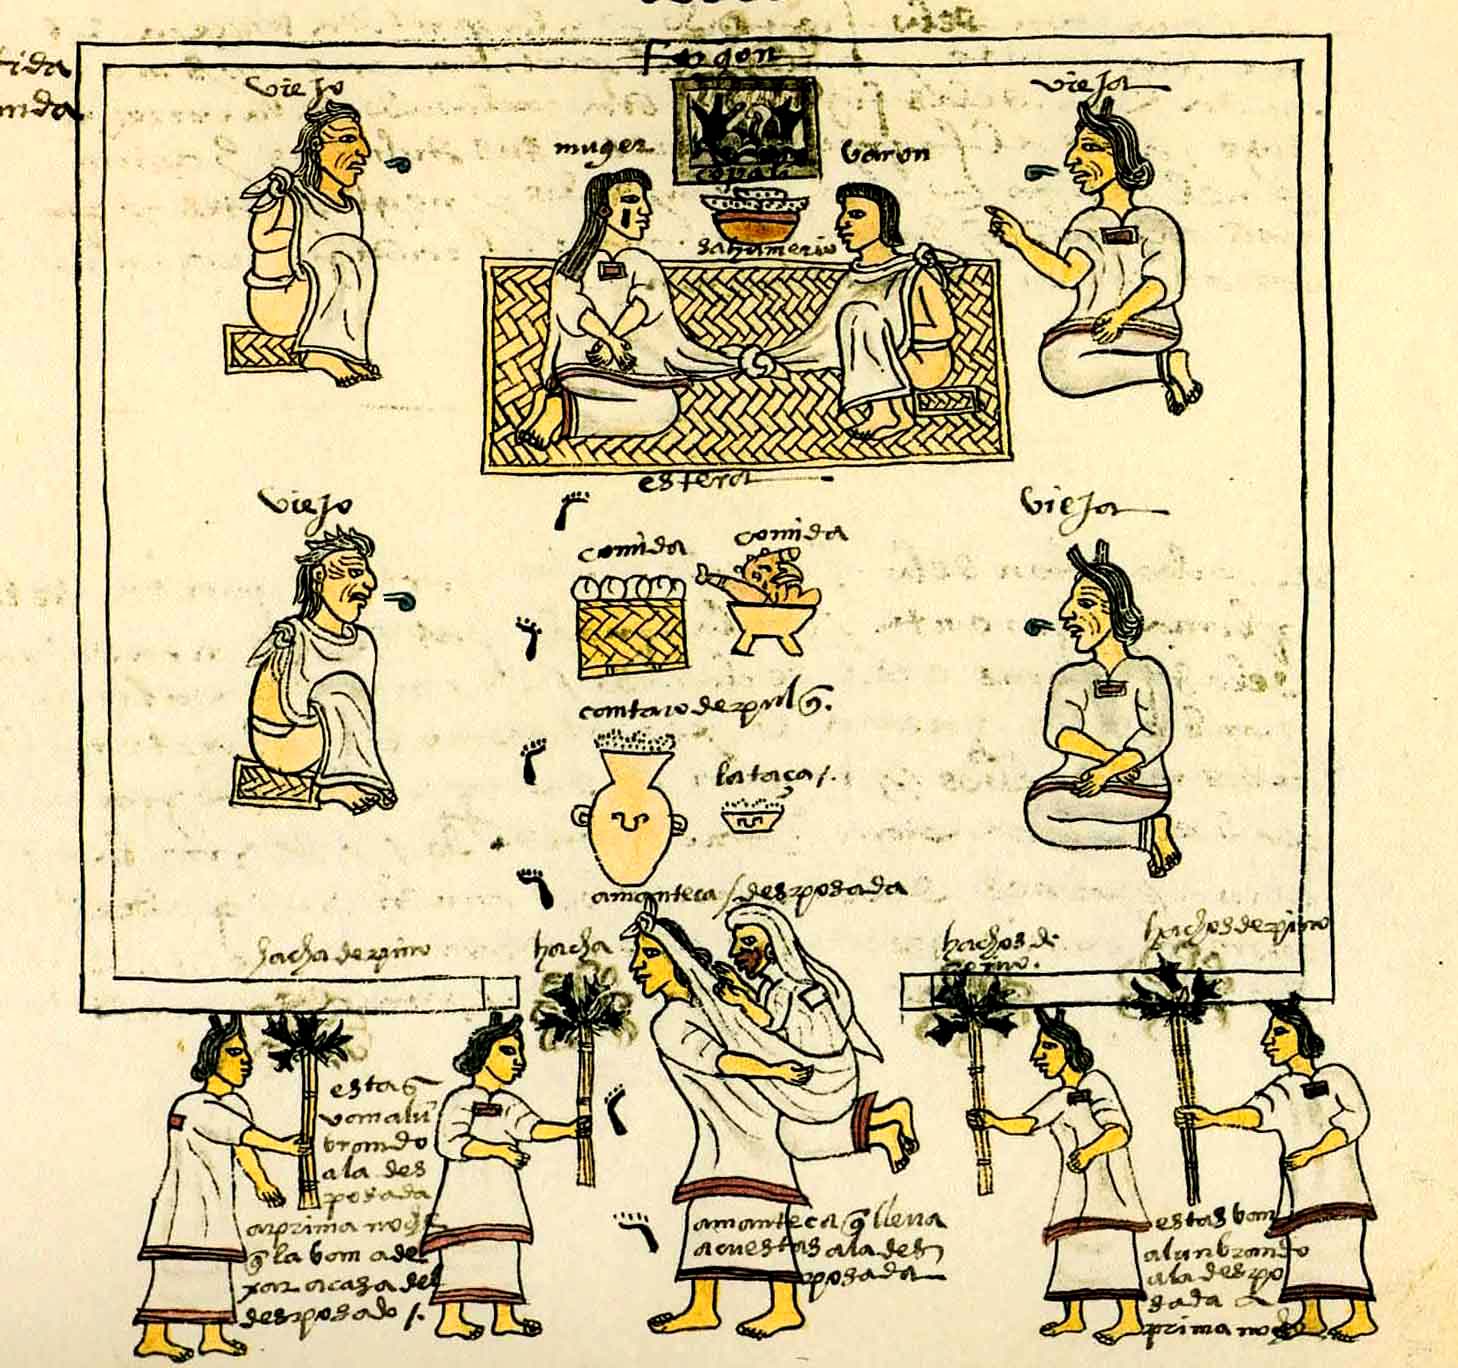 tida
nda
Fogon
viejo
vieja
muger
varon
copale
sahumerio
estera
viejo
vieja
comida
comida
cantaro de pulq̃.
la taça /.
amanteca / desposada
hacha de pino
hacha
hachos de
pino.
hachos de pino
esta q̃
van alũ
brando
a la des
posada
a prima noche
q̃ la van a de
xar a casa del
desposado /.
amanteca q̃ lleva
a cuestas a la des
posada
estas van
alunbrando
a la despo
sada a
prima noche